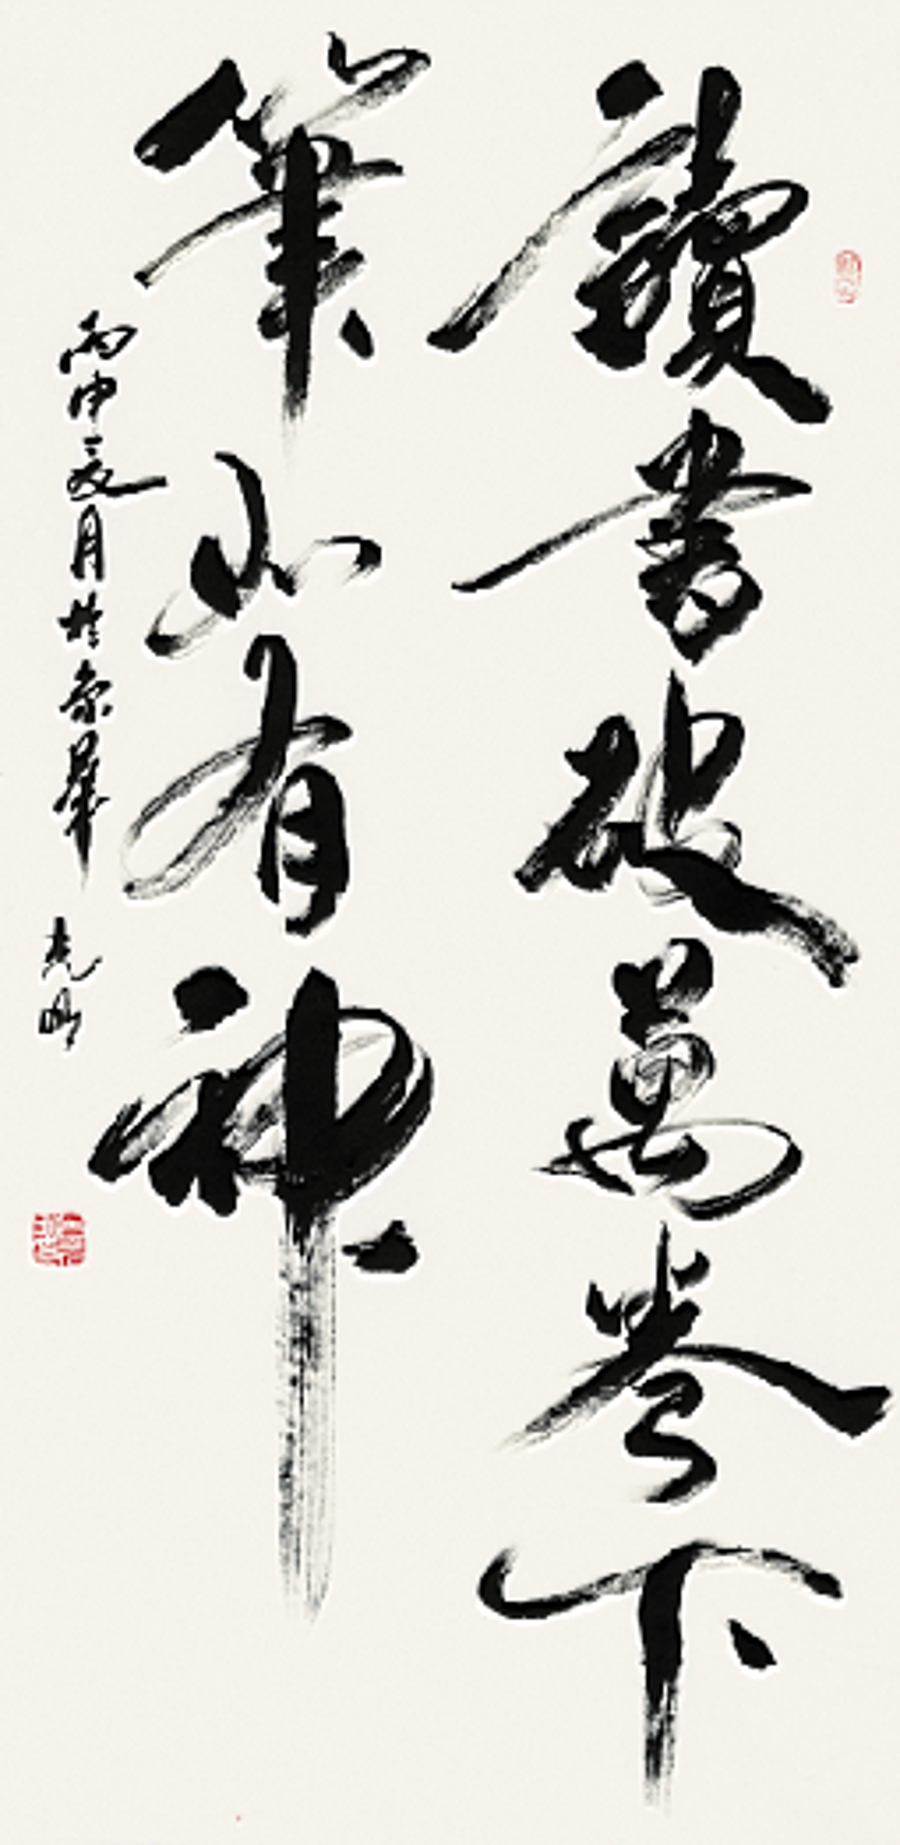 讀書破萬卷下
筆如有神
丙申夏月於京華